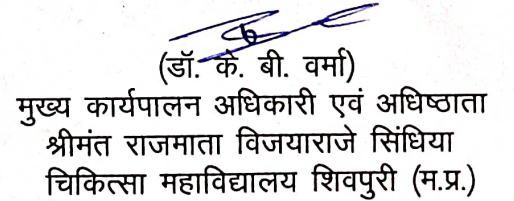 (डॉ. के. बी. वर्मा)
मुख्य कार्यपालन अधिकारी एवं अधिष्ठाता
श्रीमंत राजमाता विजयाराजे सिंधिया
चिकित्सा महाविद्यालय शिवपुरी (म.प्र.)